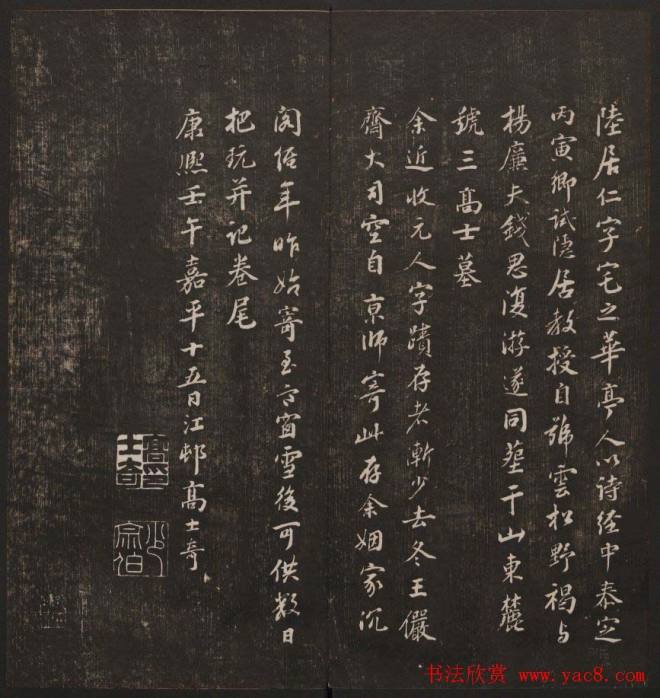 陸居仁字宅之華亭人以诗经中泰定
丙寅鄉试隱居教授自號雲松野褐与
楊廉夫錢思復游遂同墓干山東麓
號三高士墓
余近收元人字蹟存者漸少去冬王儼
齋大司空自京师寄此存余姻家沉
阁經年昨始寄至高窗雪後可供数日
把玩并记卷尾
康熙壬午嘉平十五日江邨高士奇
高士奇印
宗伯
书法欣赏 www.yac8.com